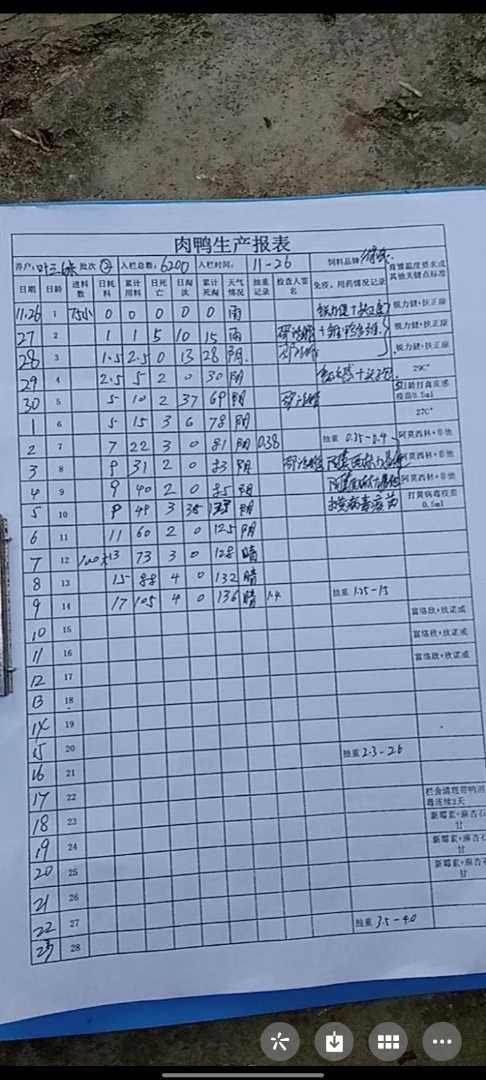 肉鸭生产报表
养户: 批次 ② 入栏总数: 6200 入栏时间: 11-26 饲料品牌
日期 日龄 进料数 日耗料 累计用料 日死亡 日淘汰 累计死淘 天气情况 抽重记录 检查人签名 免疫、用药情况记录 育雏温度要求或其他关键点标准
11.26 1 75小 0 0 0 0 0 雨 锐力健+扶正康
27 2 1 1 5 10 15 雨 锐力健+扶正康
28 3 1.5 2.5 0 13 28 阴 锐力健+扶正康
29 4 2.5 5 2 0 30 阴 29C°
30 5 5 10 2 37 69 阴 5日龄打禽流感疫苗0.5ml
1 6 5 15 3 6 78 阴 27C°
2 7 7 22 3 0 81 阴 0.38 抽重 0.35-0.4 阿莫西林+非他
3 8 9 31 2 0 83 阴 阿莫西林+非他
4 9 9 40 2 0 85 阴 阿莫西林+非他
5 10 9 49 3 35 阴 打黄病毒疫苗0.5ml
6 11 11 60 2 0 125 阴
7 12 13 73 3 0 128 晴
8 13 15 88 4 0 132 晴
9 14 17 105 4 0 136 晴 1.4 抽重 1.25-1.5
10 15 富络欣+欣诺成
11 16 富络欣+欣诺成
12 17 富络欣+欣诺成
13 18
14 19
15 20 抽重 2.3-2.6
16 21
17 22 栏舍清理带鸭消毒连续3天
18 23 新霉素+麻杏石甘
19 24 新霉素+麻杏石甘
20 25 新霉素+麻杏石甘
21 26
22 27 抽重 3.5-4.0
23 28